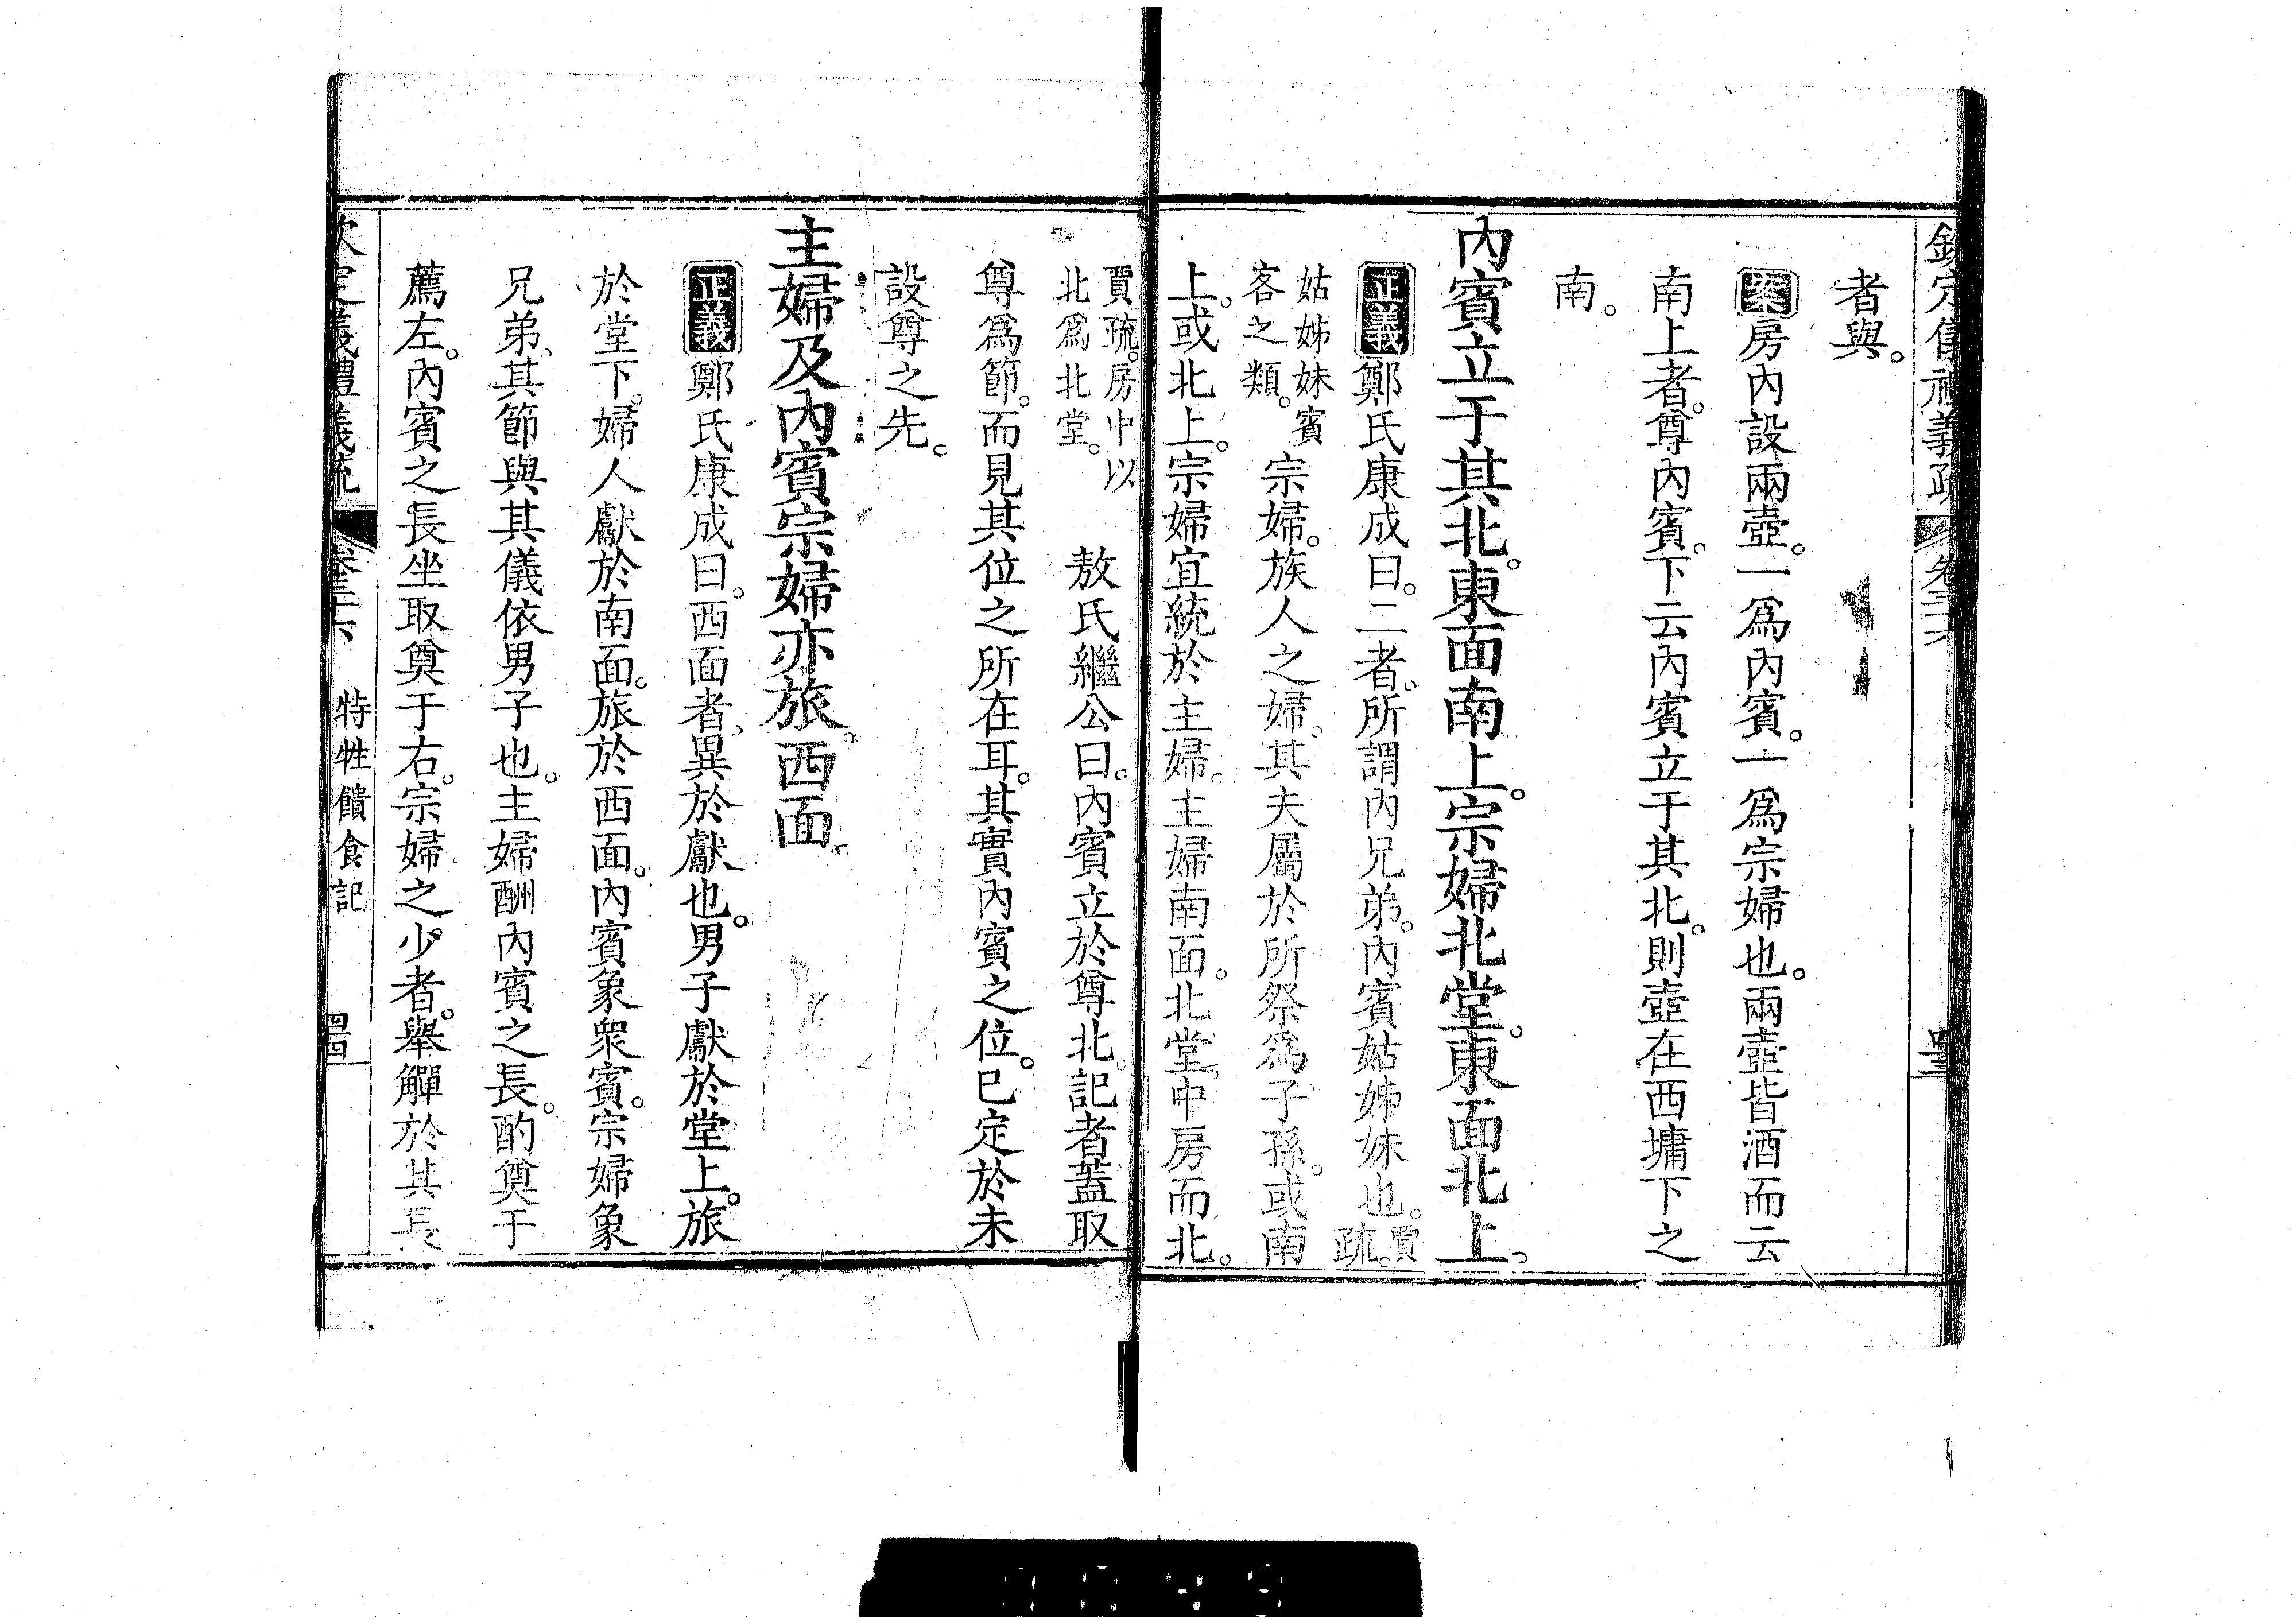 欽定儀禮義疏 卷三十六 四十三
者與。
案房內設兩壺。一爲內賓。一爲宗婦也。兩壺皆酒而云
南上者。尊內賓。下云內賓立于其北。則壺在西墉下之
南。
內賓立于其北。東面南上。宗婦北堂。東面北上。
正義鄭氏康成曰。二者。所謂內兄弟。內賓姑姊妹也。賈疏。
姑姊妹賓客之類。宗婦。族人之婦。其夫屬於所祭爲子孫。或南
上。或北上。宗婦宜統於主婦。主婦南面。北堂。中房而北。
賈疏。房中以北爲北堂。 敖氏繼公曰。內賓立於尊北。記者蓋取
尊爲節。而見其位之所在耳。其實內賓之位。已定於未
設尊之先。
主婦及內賓宗婦亦旅。西面。
正義鄭氏康成曰。西面者。異於獻也。男子獻於堂上。旅
於堂下。婦人獻於南面。旅於西面。內賓象眾賓。宗婦象
兄弟。其節與其儀依男子也。主婦酬內賓之長。酌奠于
薦左。內賓之長坐取奠于右。宗婦之少者。舉觶於其長
欽定儀禮義疏 卷三十六 特牲饋食記 四十四